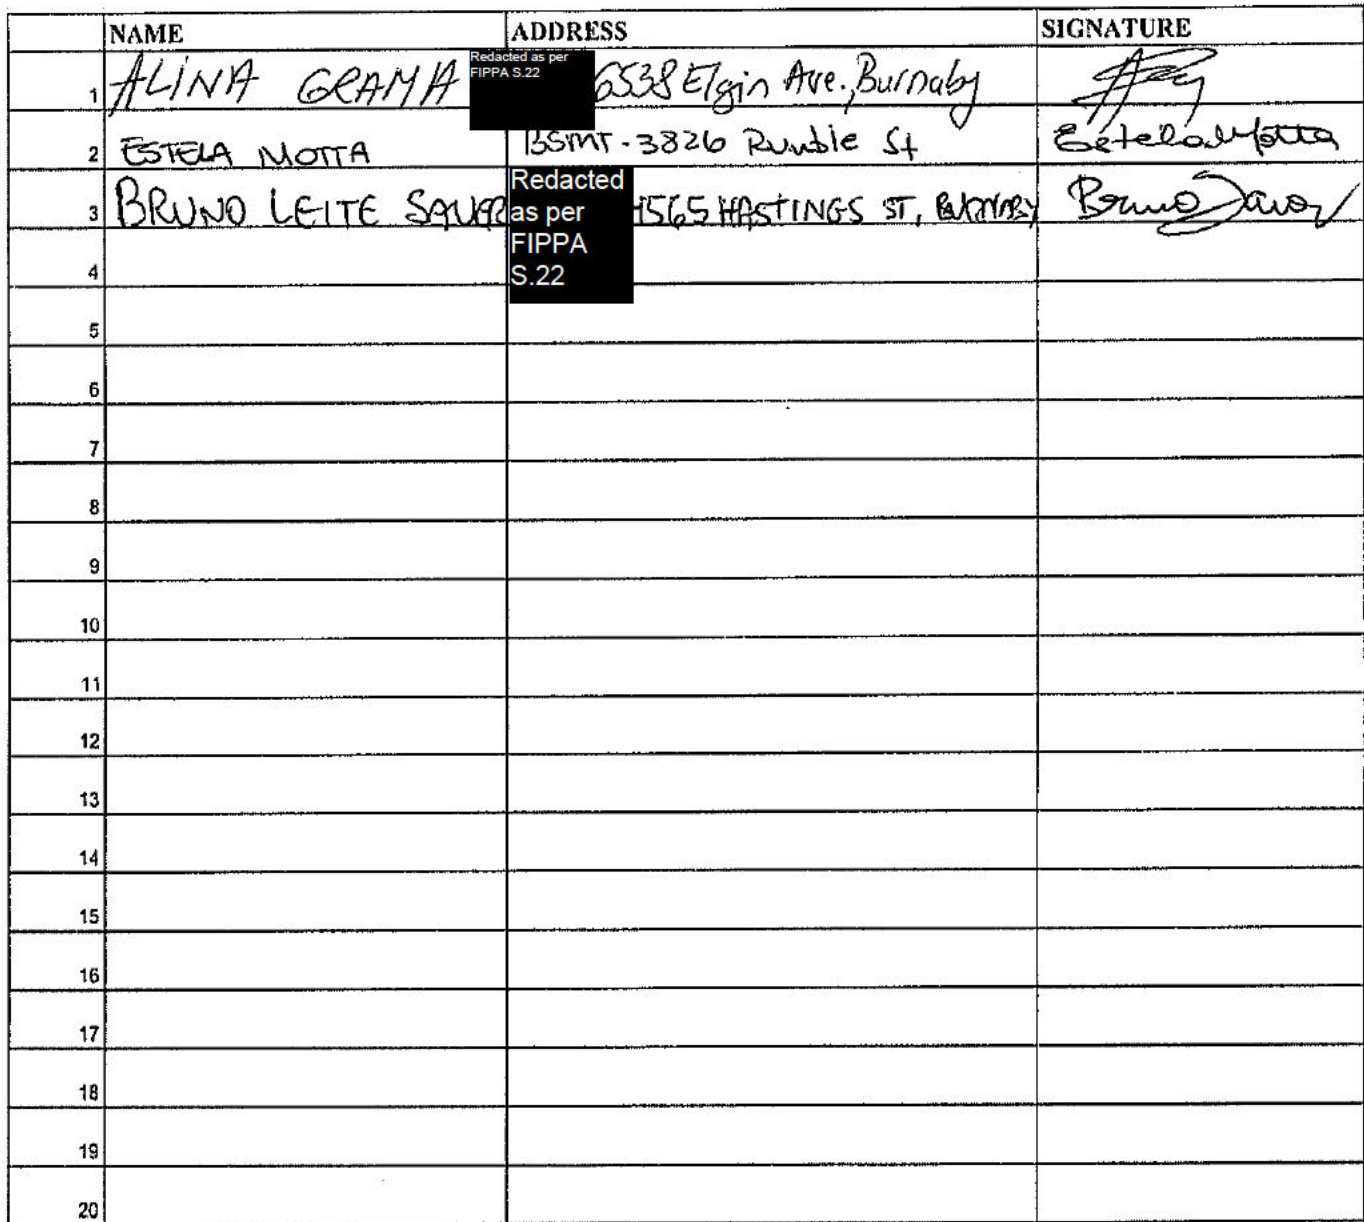 NAME ADDRESS SIGNATURE
1 ALINA GRAMA Redacted as per FIPPA S.22 6538 Elgin Ave., Burnaby
2 ESTELA MOTTA BSMT - 3826 Rumble St Estela Motta
3 BRUNO LEITE Redacted as per FIPPA S.22 4565 HASTINGS ST, BURNABY Bruno
4
5
6
7
8
9
10
11
12
13
14
15
16
17
18
19
20